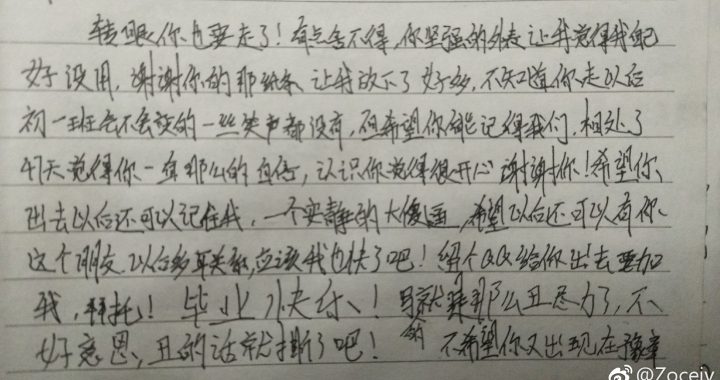 转眼你也要走了！有点舍不得，你坚强的外表让我觉得我配
好没用，谢谢你的那纸条，让我放下了好多，不知道你走以后
初一班会不会变的一些笑声都没有，但希望你能记得我们，相处了
47天觉得你一直那么的自信，认识你觉得很开心 谢谢你！希望你
出去以后还可以记住我，一个安静的大傻逼，希望以后还可以有你
这个朋友，以后多联系，应该我也快了吧！留个QQ给你出去要加
我，拜托！毕业快乐！字就是那么丑尽力了，不
好意思，丑的话就撕了吧！ 不希望你又出现在豫章
@Zoceiv